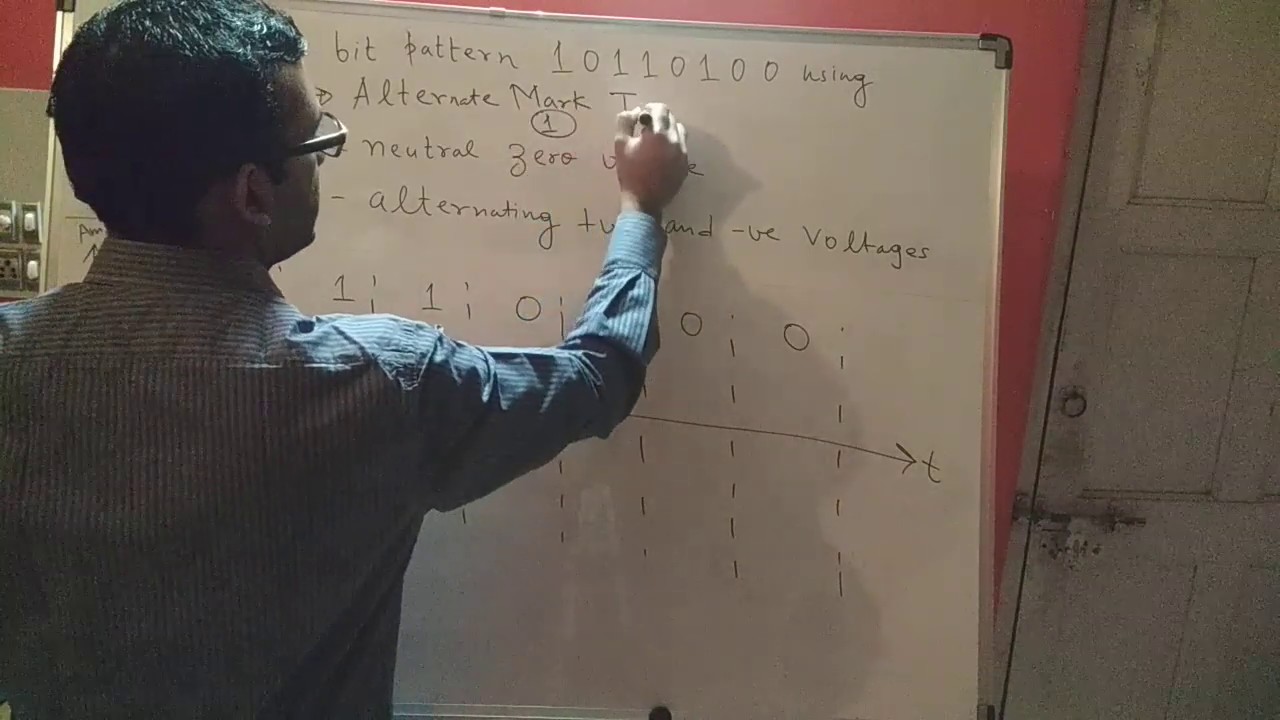 bit pattern 10110100 using
Alternate Mark
1
neutral zero
- alternating and -ve voltages
1 1 0 0 0
t